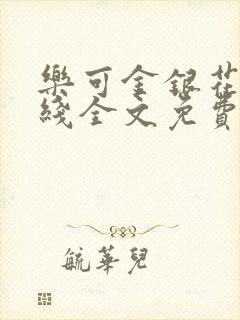 樂可金銀花
綫全文免費
毓華兒